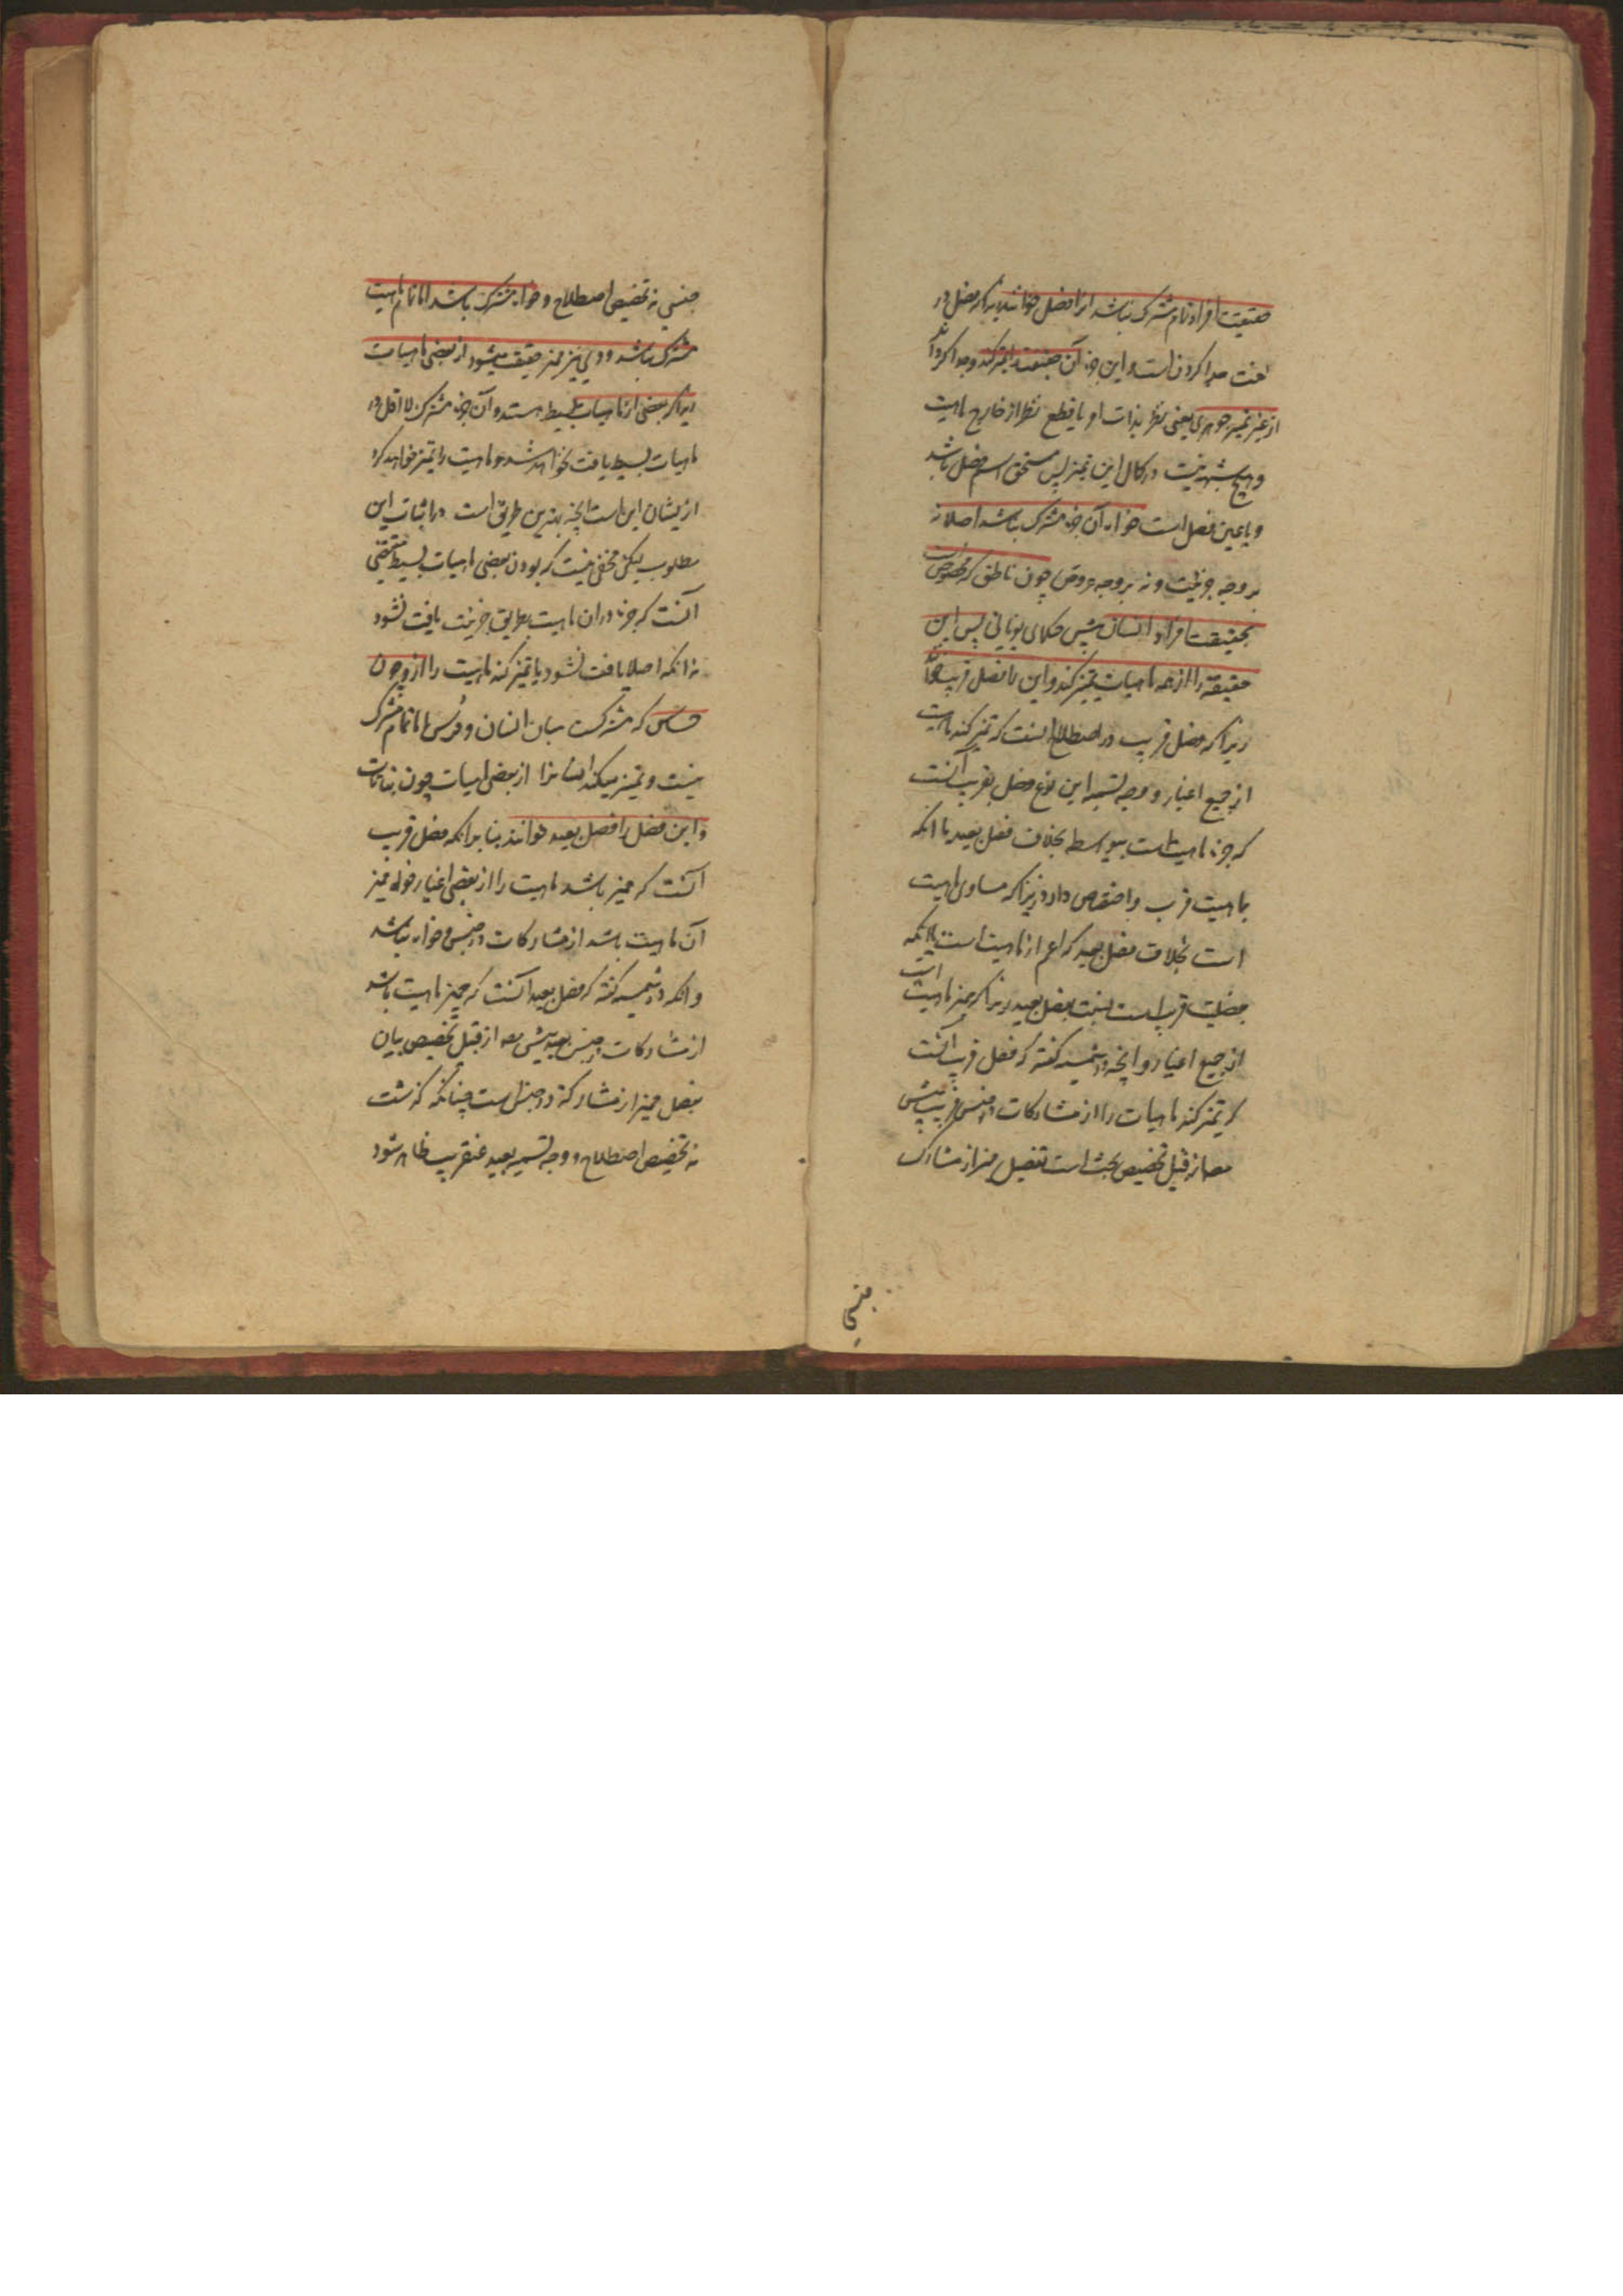 حقیقت افراد تمام مشترک نباشد انرا فصل خوانند زیرا که فصل در
لغت جدا کردن است و این جزء آن حقیقت را تمیز کند و جدا گرداند
از غیر تمیز جوهری یعنی نظر بذات او با قطع نظر از خارج ماهیت
و هیچ شبهه نیست در کمال این تمیز پس مستحق اسم فصل باشد
و یا عین فصل است خواه آن جزء مشترک نباشد اصلا نه
بر وجه جزئیت و نه بر وجه عروض چون ناطق که مخصوص است
بحقیقت افراد انسان پیش حکمای یونانی پس این
حقیقت را از همه ماهیات تمیز کند و این را فصل قریب خوانند
زیرا که فصل قریب در اصطلاح آنست که تمیز کند ماهیت
از جمیع اغیار و وجه تسمیه این نوع فصل بقریب آنست
که جزء ماهیت است بیواسطه بخلاف فصل بعید یا آنکه
بماهیت قرب و اختصاص دارد زیرا که مساوی ماهیت
است بخلاف فصل بعید که اعم از ماهیت است یا آنکه
بفصلیت قریب است بنسبت بفصل بعید زیرا که ممیز ماهیت است
از جمیع اغیار و آنچه در شمسیه گفته که فصل قریب آنست
که تمیز کند ماهیات را از مشارکات در جنس قریب پیش
مصه از قبیل تخصیص بحث است بفصل ممیز از مشارک
جنسی
جنسی نه تخصیص اصطلاح و خواه مشترک باشد اما تمام ماهیت
مشترک نباشد و وی نیز ممیز حقیقت میشود از بعضی ماهیات
زیرا که بعضی از ماهیات بسیط هستند و آن جزء مشترک لا اقل در
ماهیات بسیط یافت نخواهد شد و ماهیت را تمیز خواهد کرد
از یشان این است آنچه بهترین طریق است در اثبات این
مطلوب لیکن مخفی نیست که بودن بعضی ماهیات بسیط مقتضی
آنست که جزء در ان ماهیت بطریق جزئیت یافت نشود
نه آنکه اصلا یافت نشود یا تمیز کند ماهیت را از و چون
حساس که مشترکست میان انسان و فرس اما تمام مشترک
نیست و تمیز میکند انسان را از بعضی ماهیات چون نباتات
و این فصل را فصل بعید خوانند بنا بر آنکه فصل قریب
آنست که ممیز باشد ماهیت را از بعضی اغیار خواه ممیز
آن ماهیت باشد از مشارکات در جنس و خواه نباشد
و آنکه در شمسیه گفته که فصل بعید آنست که ممیز ماهیت باشد
از مشارکات در جنس بعید پیش مصه از قبیل تخصیص بیان
بفصل ممیز از مشارکة در جنس است چنانکه گذشت
نه تخصیص اصطلاح و وجه تسمیه بعید عنقریب ظاهر شود